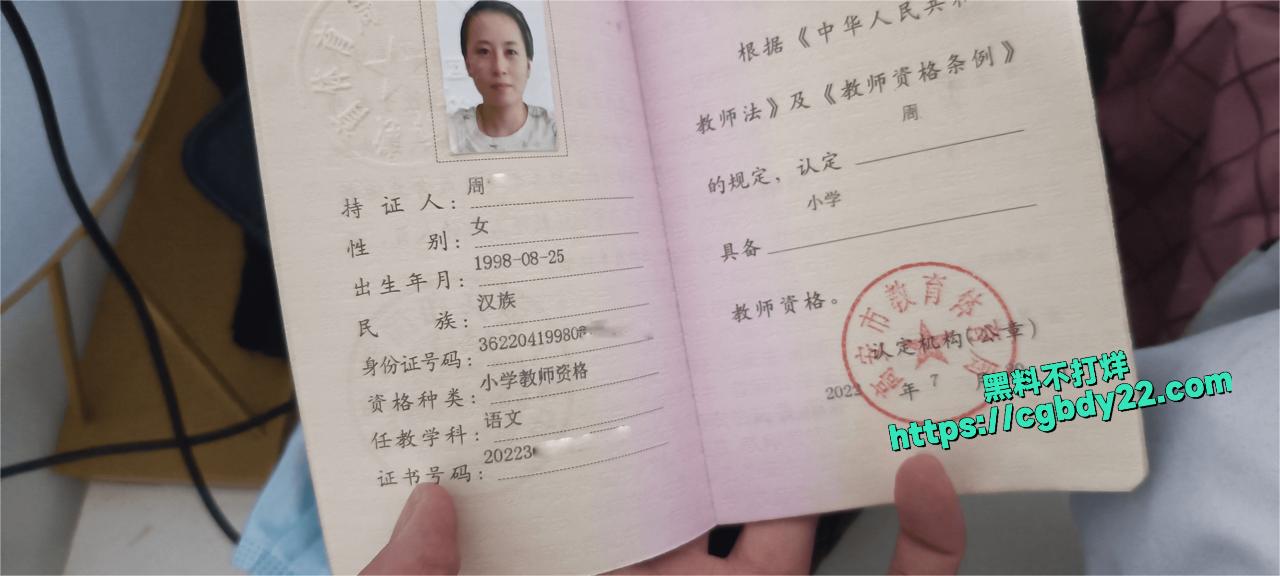 持证人：周
性别：女
出生年月：1998-08-25
民族：汉族
身份证号码：36220419980
资格种类：小学教师资格
任教学科：语文
证书号码：20223
根据《中华人民共和
教师法》及《教师资格条例》
的规定，认定 周
具备 小学
教师资格。
认定机构（公章）
2022年7月
高安市教育体育局
黑料不打烊
https://cgbdy22.com